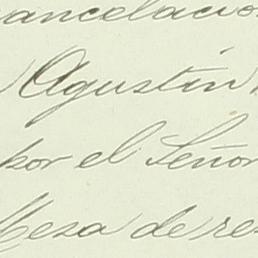 ancelacio
Agustin
por el Señor
Mesa de res